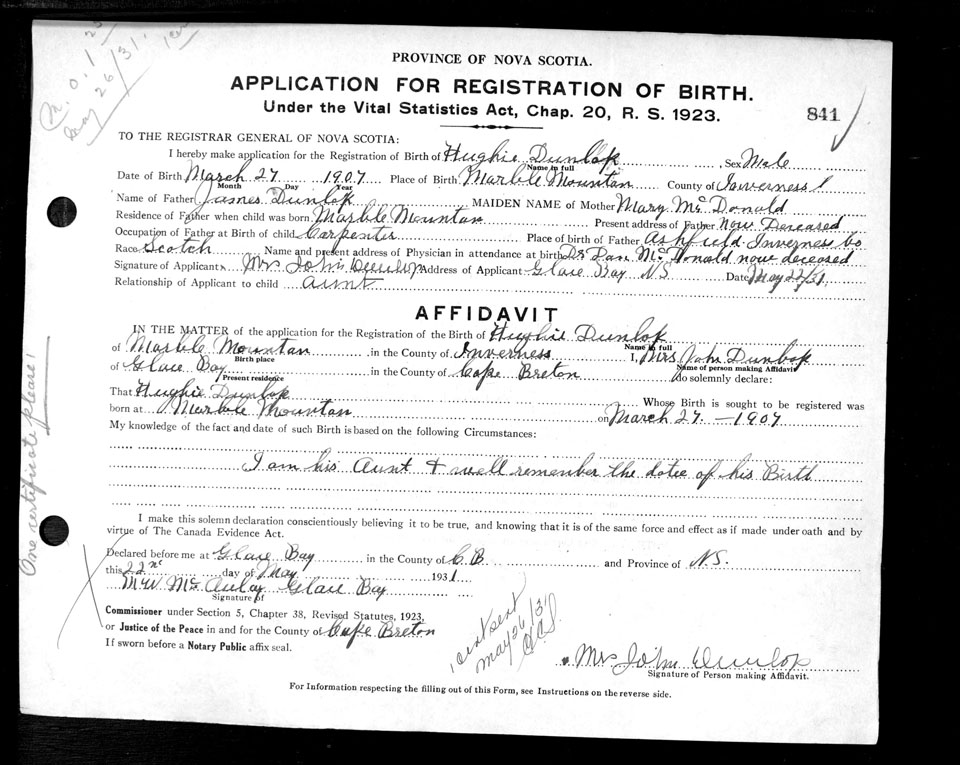 M. O. 1.25
May 26/31.
PROVINCE OF NOVA SCOTIA.
APPLICATION FOR REGISTRATION OF BIRTH.
Under the Vital Statistics Act, Chap. 20, R. S. 1923.
841
TO THE REGISTRAR GENERAL OF NOVA SCOTIA:
I hereby make application for the Registration of Birth of Hughie Dunlop, Sex Male
Name in full
Date of Birth March 27 1907 Place of Birth Marble Mountan County of Inverness
Month Day Year
Name of Father James Dunlop MAIDEN NAME of Mother Mary McDonald
Residence of Father when child was born Marble Mountan Present address of Father Now Deceased
Occupation of Father at Birth of child Carpenter Place of birth of Father Ashfield Inverness Co
Race Scotch Name and present address of Physician in attendance at birth Dr Dan McDonald now deceased
Signature of Applicant Mrs John Dunlop Address of Applicant Glace Bay N.S. Date May 22/31
Relationship of Applicant to child aunt
AFFIDAVIT
IN THE MATTER of the application for the Registration of the Birth of Hughie Dunlop
Name in full
of Marble Mountan in the County of Inverness I, Mrs John Dunlop
Birth place Name of person making Affidavit
of Glace Bay in the County of Cape Breton do solemnly declare:
Present residence
That Hughie Dunlop Whose Birth is sought to be registered was
born at Marble Mountan on March 27 - 1907
My knowledge of the fact and date of such Birth is based on the following Circumstances:
I am his Aunt & well remember the date of his Birth
I make this solemn declaration conscientiously believing it to be true, and knowing that it is of the same force and effect as if made under oath and by
virtue of The Canada Evidence Act.
Declared before me at Glace Bay in the County of C.B and Province of N.S.
this 22nd day of May 1931
McAulay Glace Bay
Signature of
Commissioner under Section 5, Chapter 38, Revised Statutes, 1923,
or Justice of the Peace in and for the County of Cape Breton
If sworn before a Notary Public affix seal.
cert sent
May 26/31
Mrs John Dunlop
Signature of Person making Affidavit.
For Information respecting the filling out of this Form, see Instructions on the reverse side.
One certificate please!